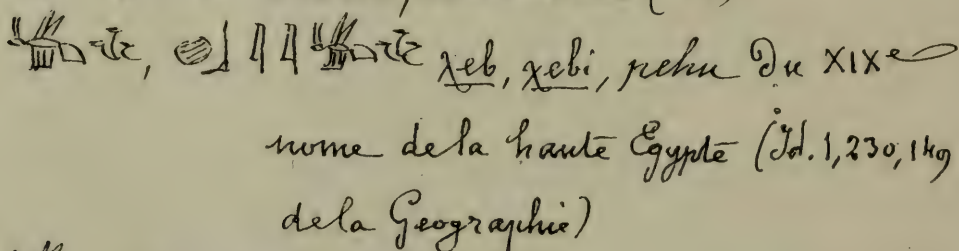 χeb, χebi, pehu du XIXe
nome de la haute Égypte (Id. 1,230,149
de la Geographie)